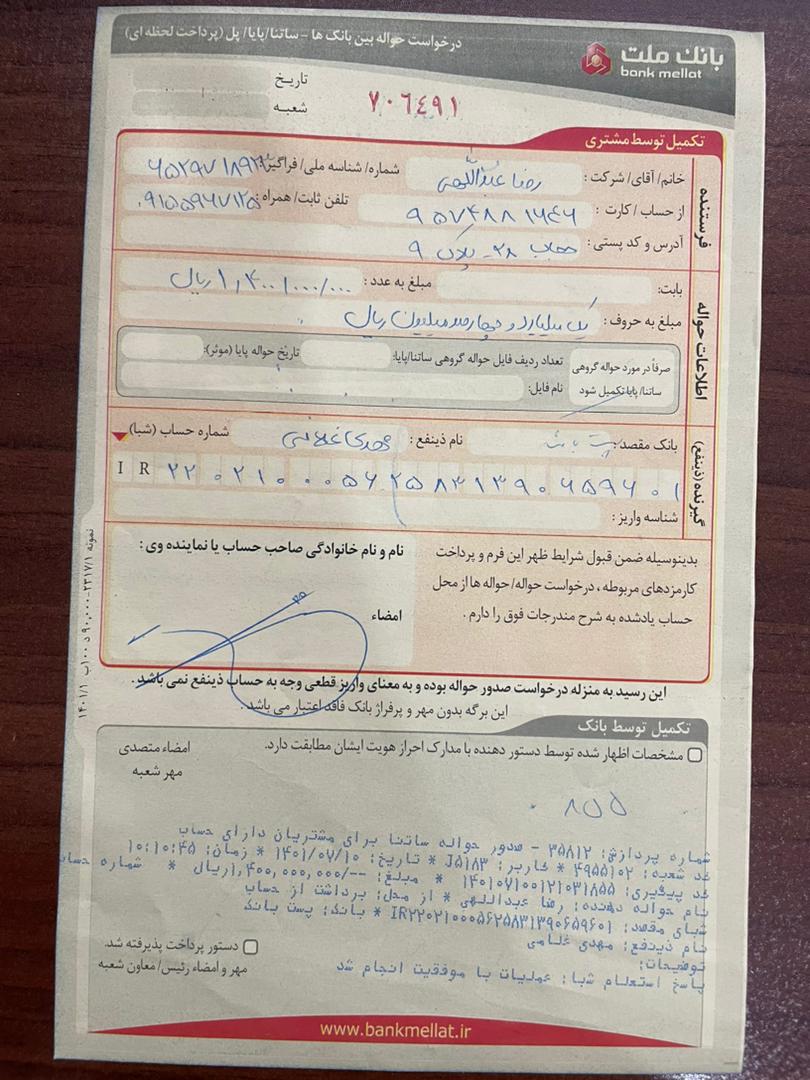 درخواست حواله بین بانک ها - ساتنا/پایا/ پل (پرداخت لحظه ای)
بانک ملت
bank mellat
تاریخ
شعبه
۷۰۶۴۹۱
تکمیل توسط مشتری
فرستنده
خانم/ آقای/ شرکت: رضا عبداللهی شماره/ شناسه ملی/ فراگیر:
از حساب / کارت: تلفن ثابت/ همراه:
آدرس و کد پستی: ۲۸ - پلاک ۹
اطلاعات حواله
بابت: مبلغ به عدد: ۱,۴۰۰,۰۰۰,۰۰۰ ریال
مبلغ به حروف: یک میلیارد و چهارصد میلیون ریال
صرفاً در مورد حواله گروهی ساتنا/ پایا تکمیل شود
تعداد ردیف فایل حواله گروهی ساتنا/پایا: تاریخ حواله پایا (موثر):
نام فایل:
گیرنده (ذینفع)
بانک مقصد: پست بانک نام ذینفع: مهدی غلامی شماره حساب (شبا)
IR ۲۲۰۲۱۰۰۰۵۶۲۵۸۳۱۳۹۰۶۵۹۶۰۱
شناسه واریز:
بدینوسیله ضمن قبول شرایط ظهر این فرم و پرداخت
کارمزدهای مربوطه، درخواست حواله/ حواله ها از محل
حساب یادشده به شرح مندرجات فوق را دارم.
نام و نام خانوادگی صاحب حساب یا نماینده وی:
امضاء
این رسید به منزله درخواست صدور حواله بوده و به معنای واریز قطعی وجه به حساب ذینفع نمی باشد.
این برگه بدون مهر و پرفراژ بانک فاقد اعتبار می باشد.
تکمیل توسط بانک
مشخصات اظهار شده توسط دستور دهنده با مدارک احراز هویت ایشان مطابقت دارد.
امضاء متصدی
مهر شعبه
۸۵۵
شماره پردازش: ۳۵۸۱۲ - صدور حواله ساتنا برای مشتریان دارای حساب
کد شعبه: ۴۹۵۵۱۰۲ * کاربر: J۵۱۸۳ * تاریخ: ۱۴۰۱/۰۷/۱۰ * زمان: ۱۰:۱۰:۴۵
کد پیگیری: ۱۴۰۱۰۷۱۰۰۱۲۱۰۳۱۸۵۵ * مبلغ: --/۱,۴۰۰,۰۰۰,۰۰۰ریال * شماره حساب
نام حواله دهنده: رضا عبداللهی * از محل: برداشت از حساب
شبای مقصد: IR۲۲۰۲۱۰۰۰۵۶۲۵۸۳۱۳۹۰۶۵۹۶۰۱ * بانک: پست بانک
نام ذینفع: مهدی غلامی
توضیحات:
پاسخ استعلام شبا: عملیات با موفقیت انجام شد
دستور پرداخت پذیرفته شد.
مهر و امضاء رئیس/ معاون شعبه
www.bankmellat.ir